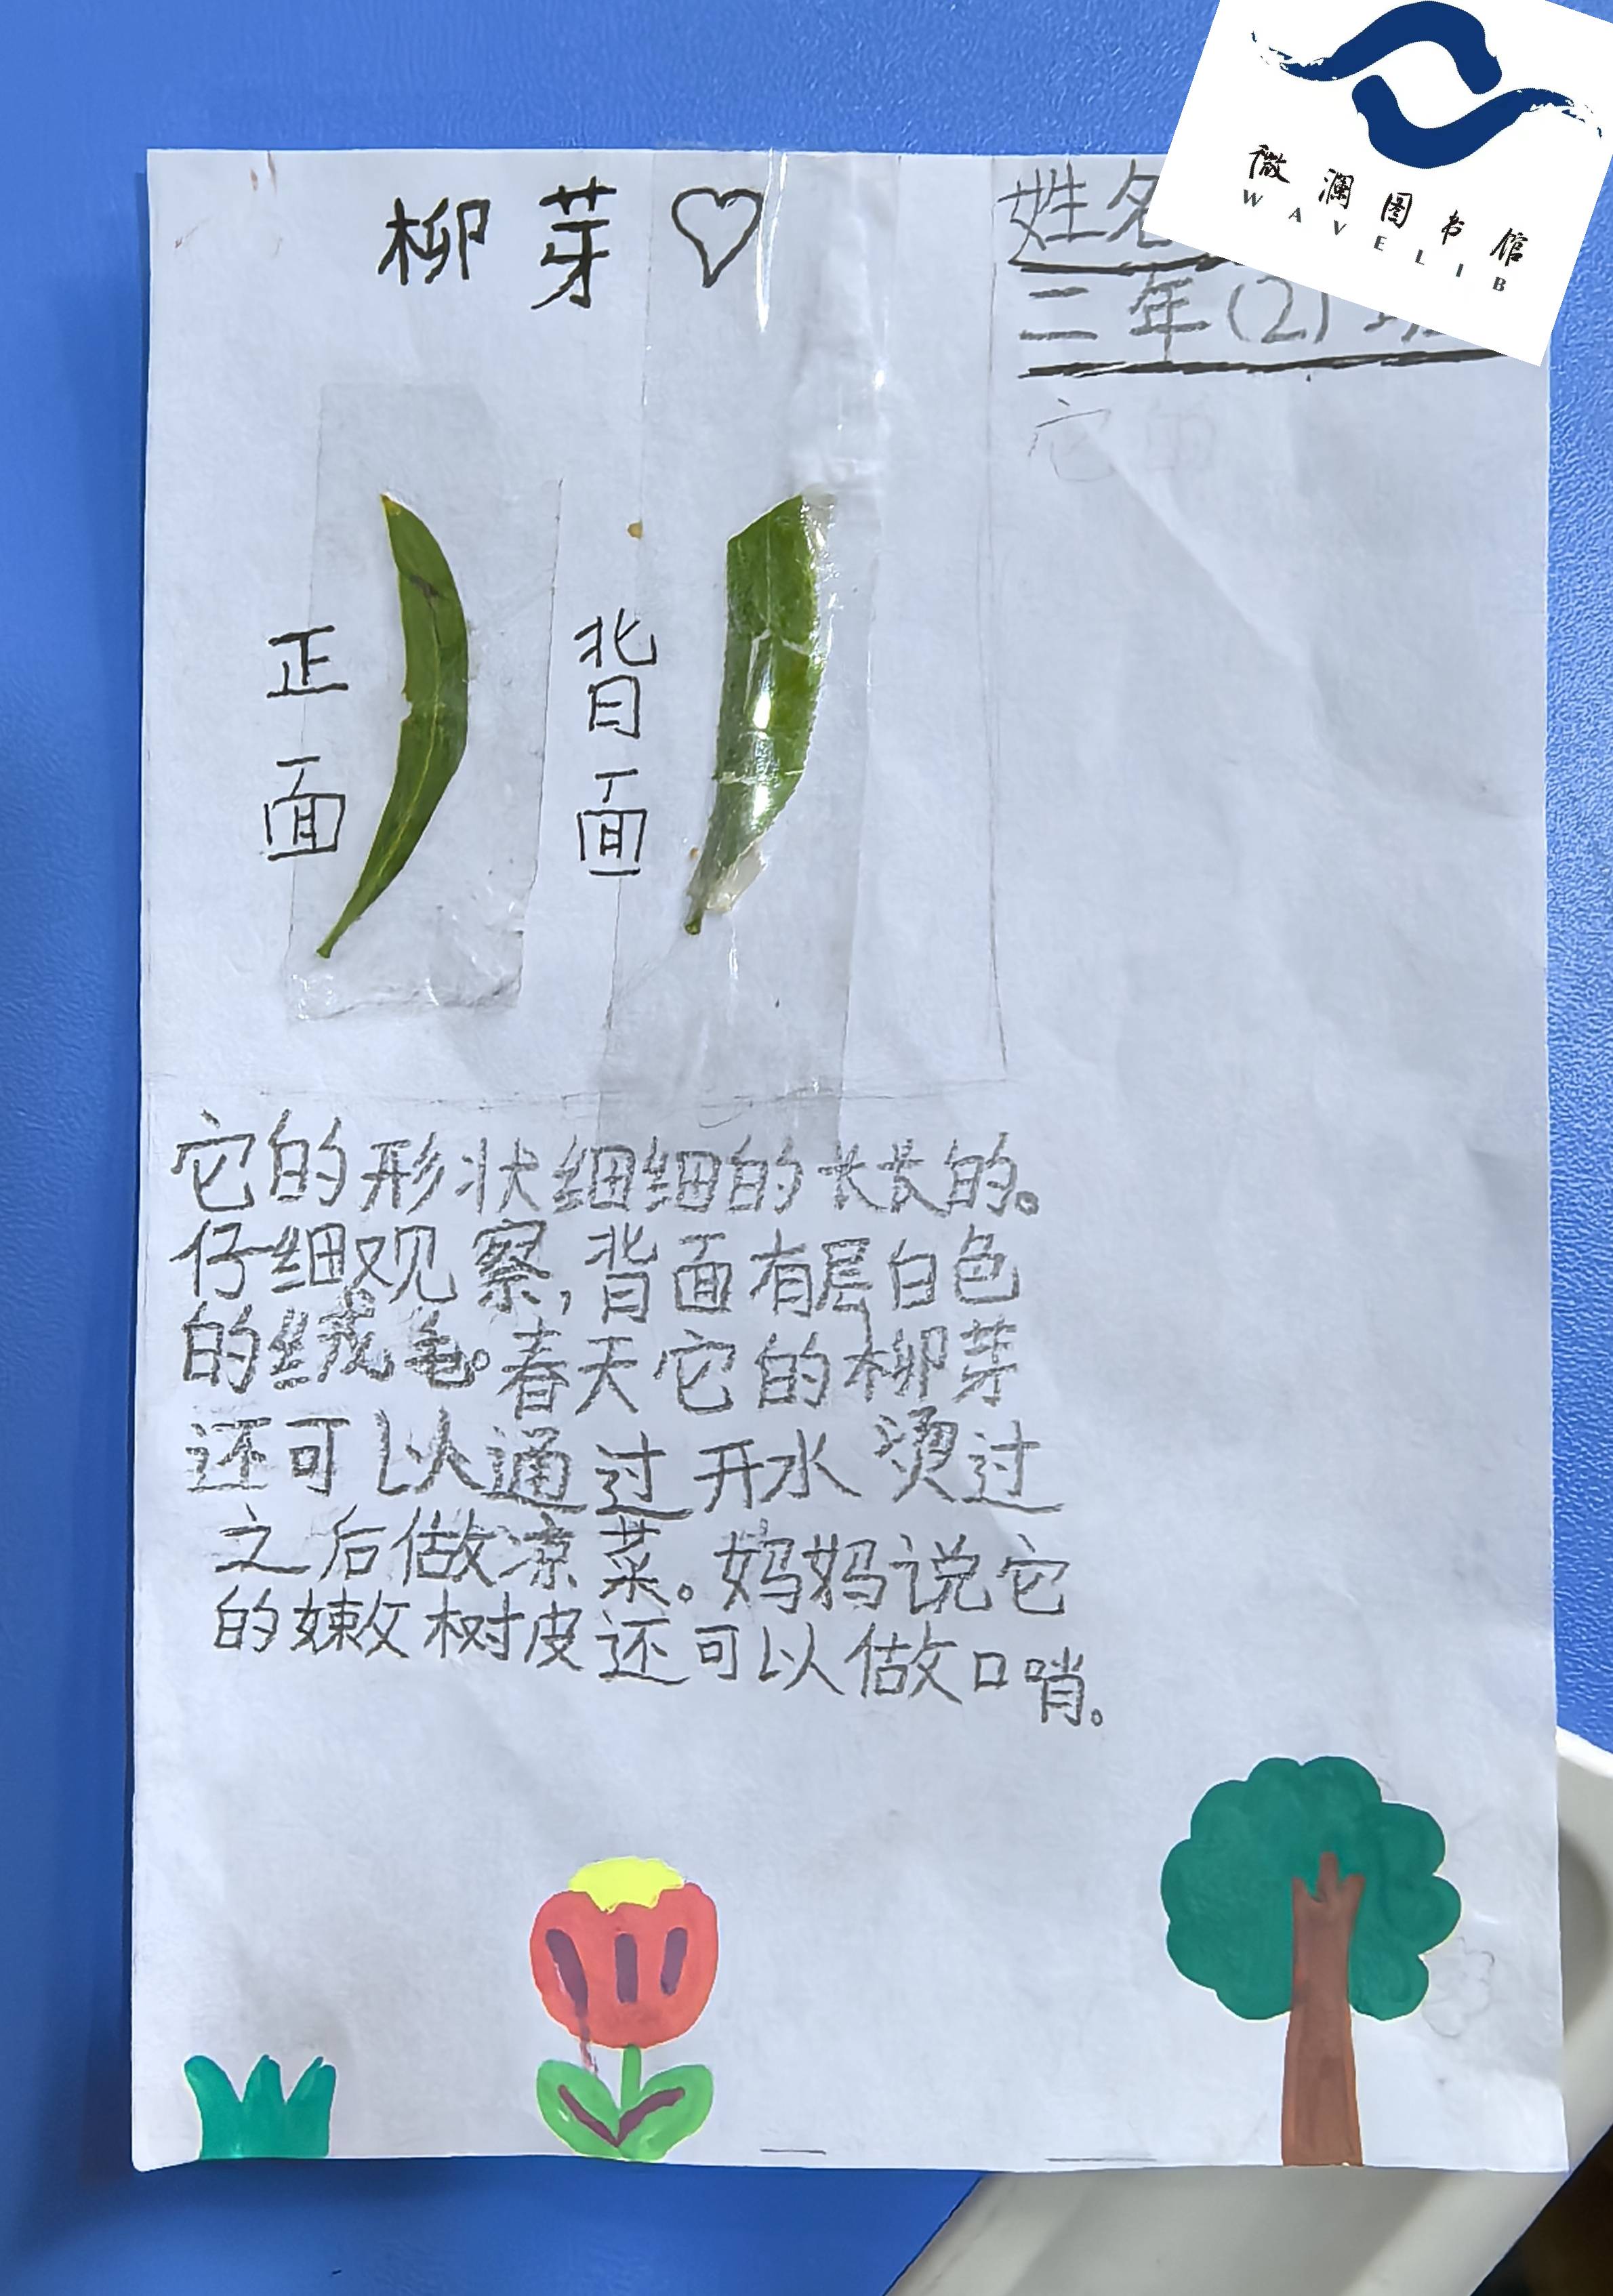 柳芽♡
姓名
三年(2)班
微澜图书馆
WAVELIB
它
正面
背面
它的形状细细的长长的。
仔细观察,背面有层白色
的绒毛。春天它的柳芽
还可以通过开水烫过
之后做凉菜。妈妈说它
的嫩树皮还可以做口哨。